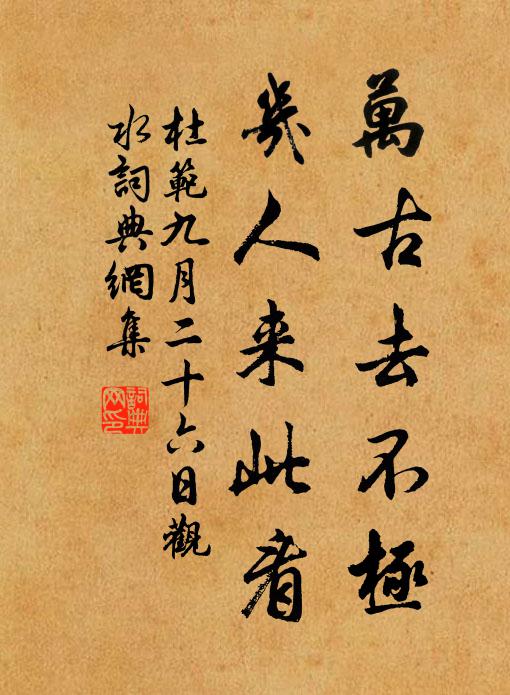 萬古去不極
幾人来此看
杜範九月二十六日觀
水詞典網集
詞典
网印